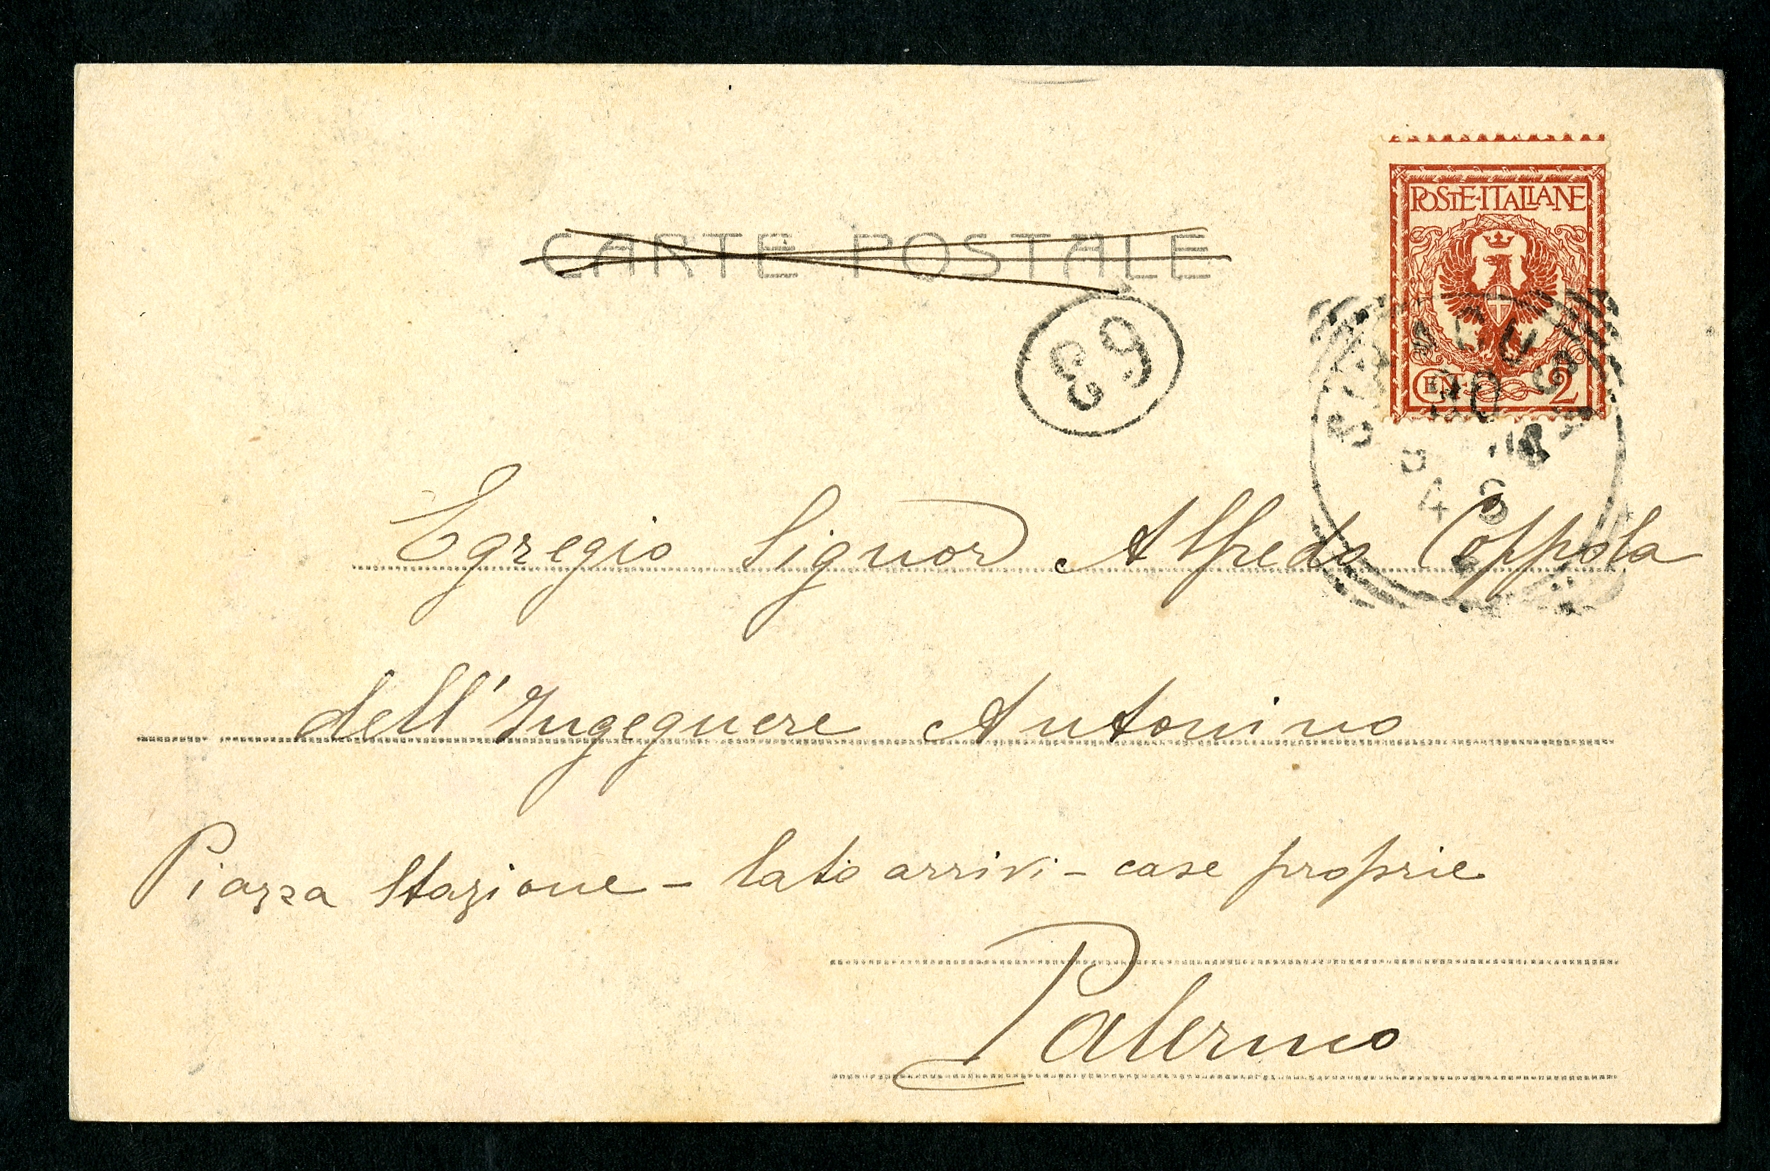 CARTE POSTALE
POSTE·ITALIANE
CEN. 2
SIRACUSA
63
Egregio Signor Alfredo Coppola
dell'Ingegnere Antonino
Piazza Stazione - lato arrivi - case proprie
Palermo